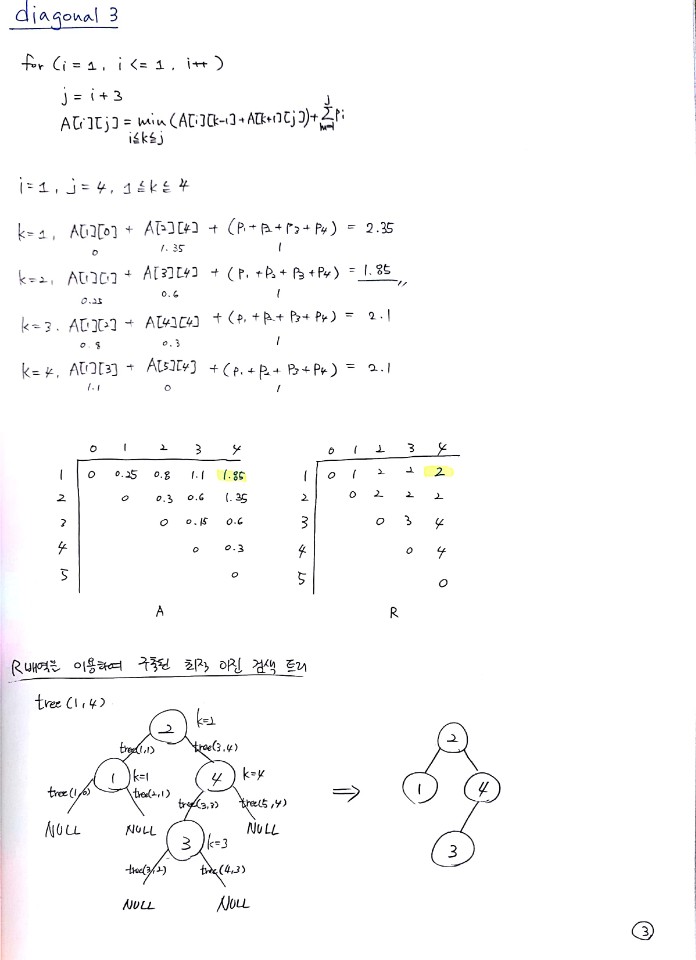 diagonal 3
for (i = 1, i <= 1, i++)
j = i + 3
A[i][j] = min (A[i][k-1] + A[k+1][j]) + Σ Pi
i≤k≤j
j
m=i
i = 1, j = 4, 1 ≤ k ≤ 4
k=1, A[1][0] + A[2][4] + (P1 + P2 + P3 + P4) = 2.35
0 1.35 1
k=2, A[1][1] + A[3][4] + (P1 + P2 + P3 + P4) = 1.85
0.25 0.6 1
k=3. A[1][2] + A[4][4] + (P1 + P2 + P3 + P4) = 2.1
0.8 0.3 1
k=4, A[1][3] + A[5][4] + (P1 + P2 + P3 + P4) = 2.1
1.1 0 1
0 1 2 3 4
1 0 0.25 0.8 1.1 1.85
2 0 0.3 0.6 1.35
3 0 0.15 0.6
4 0 0.3
5 0
A
0 1 2 3 4
1 0 1 2 2 2
2 0 2 2 2
3 0 3 4
4 0 4
5 0
R
R배열을 이용하여 구축된 최적 이진 검색 트리
tree(1,4)
2 k=2
tree(1,1) tree(3,4)
1 k=1 4 k=4
tree(1,0) tree(2,1) tree(3,3) tree(5,4)
NULL NULL 3 k=3 NULL
tree(3,2) tree(4,3)
NULL NULL
⇒
2
1 4
3
3